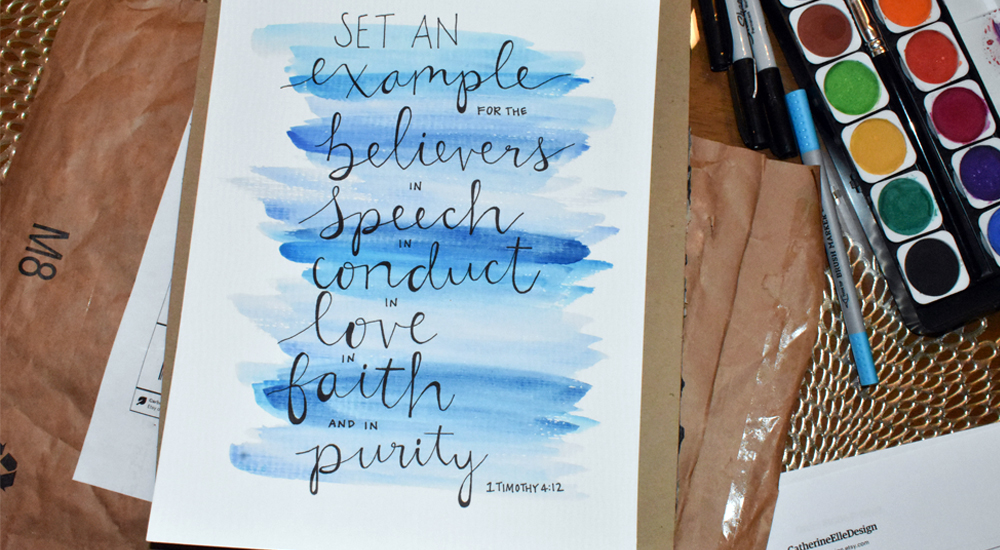 SET AN
example
FOR THE
believers
IN
speech
IN
conduct
IN
love
IN
faith
AND IN
purity
1 TIMOTHY 4:12
M8
CatherineElleDesign
BRUSH MARKER
Sharpie